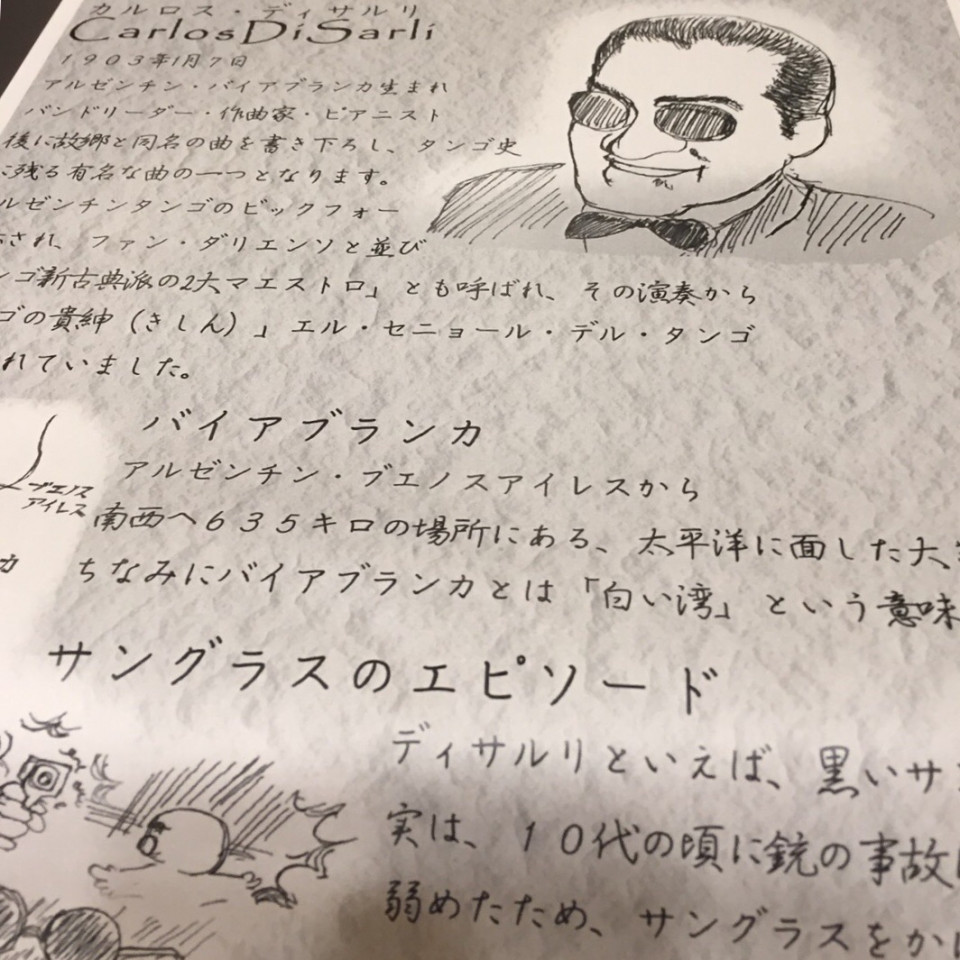 カルロス・ディサルリ
CarlosDiSarli
1903年1月7日
アルゼンチン・バイアブランカ生まれ
バンドリーダー・作曲家・ピアニスト
後に故郷と同名の曲を書き下ろし、タンゴ史
に残る有名な曲の一つとなります。
ルゼンチンタンゴのビックフォー
され、ファン・ダリエンソと並び
ンゴ新古典派の2大マエストロ」とも呼ばれ、その演奏から
ゴの貴紳(きしん)」エル・セニョール・デル・タンゴ
れていました。
バイアブランカ
アルゼンチン・ブエノスアイレスから
南西へ635キロの場所にある、太平洋に面した大
ちなみにバイアブランカとは「白い湾」という意味
ブエノス
アイレス
カ
サングラスのエピソード
ディサルリといえば、黒いサ
実は、10代の頃に銃の事故
弱めたため、サングラスをか